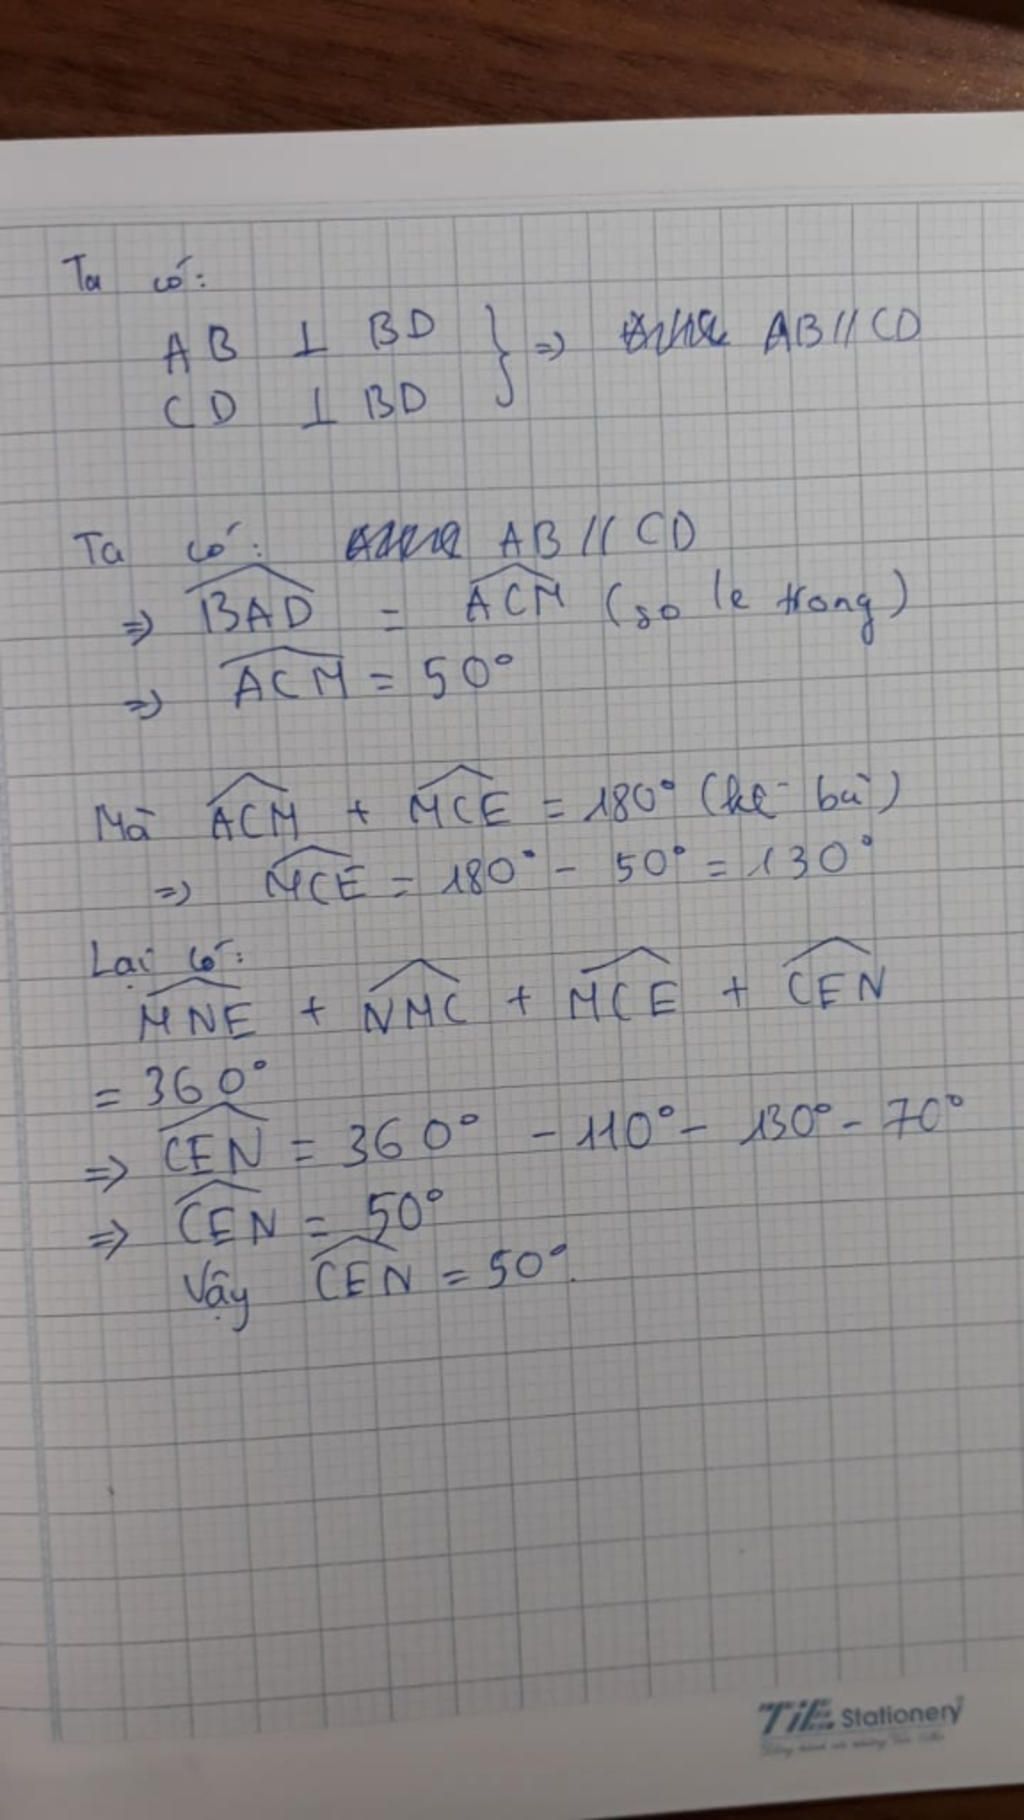 Ta có:
AB ⊥ BD } => AB // CD
CD ⊥ BD
Ta có: AB // CD
=> \widehat{BAD} = \widehat{ACM} (so le trong)
=> \widehat{ACM} = 50°
Mà \widehat{ACM} + \widehat{MCE} = 180° (kề bù)
=> \widehat{MCE} = 180° - 50° = 130°
Lại có:
\widehat{MNE} + \widehat{NMC} + \widehat{MCE} + \widehat{CEN}
= 360°
=> \widehat{CEN} = 360° - 110° - 130° - 70°
=> \widehat{CEN} = 50°
Vậy \widehat{CEN} = 50°.
TiE Stationery